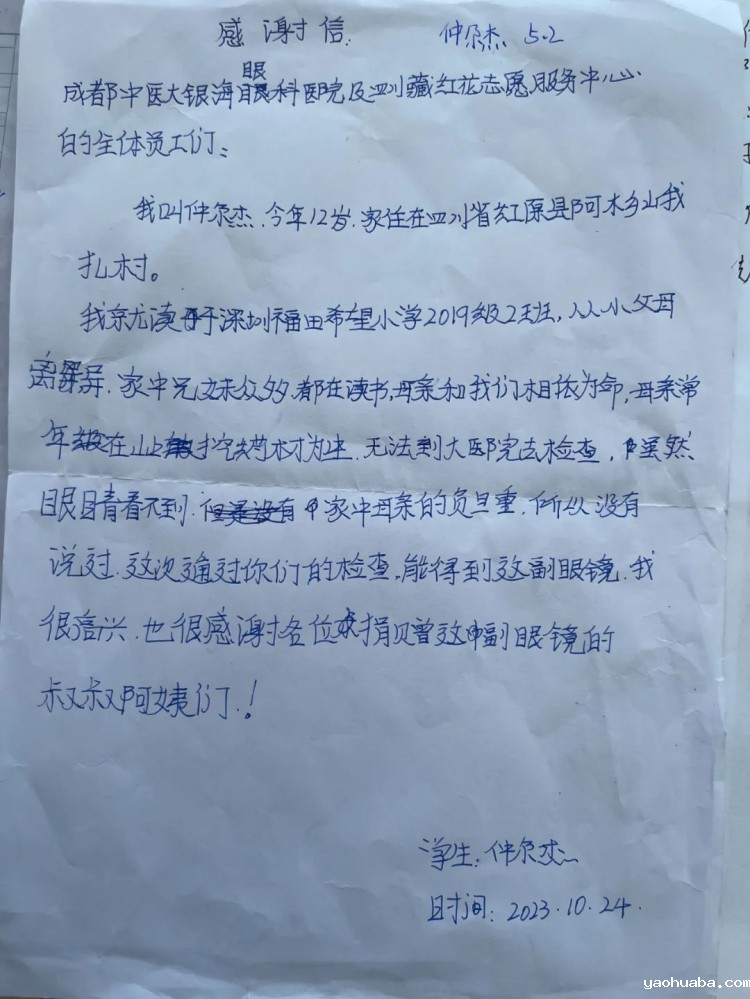 感谢信. 仲尕杰 5.2
成都中医大银海眼科医院及四川藏红花志愿服务中心
的全体员工们:
我叫仲尕杰.今年12岁.家住在四川省红原县阿木乡山我
扎村。
我就读于深圳福田希望小学2019级2班,从小父母
离异.家中兄妹众多.都在读书,母亲和我们相依为命,母亲常
年在山上挖药材为生.无法到大医院去检查,虽然
眼睛看不到.家中母亲的负旦重,所以没有
说过.这次通过你们的检查,能得到这副眼镜.我
很高兴.也很感谢各位捐赠这副眼镜的
叔叔阿姨们.!
学生:仲尕杰
时间:2023.10.24.
yaohuaba.com